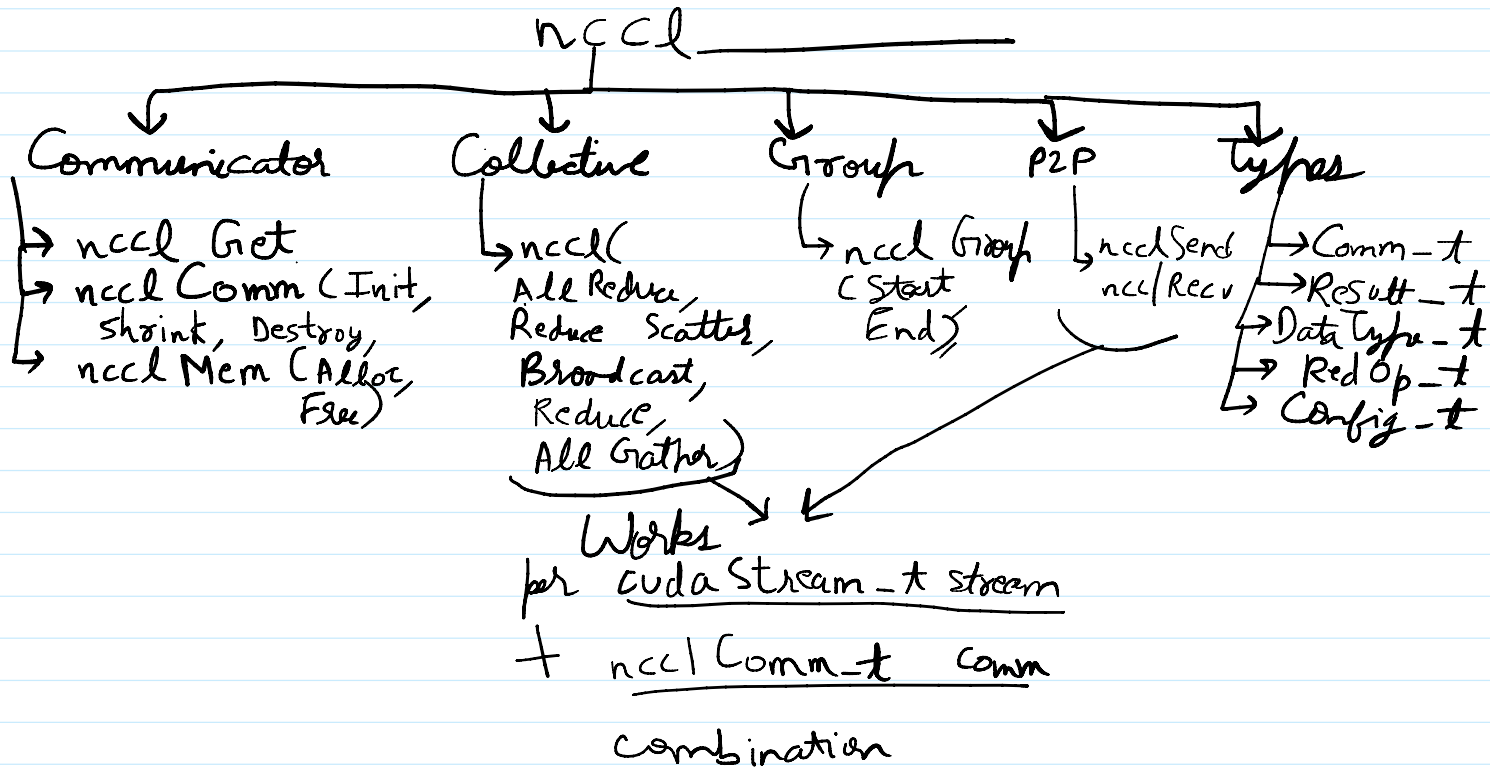 nccl
Communicator
nccl Get
nccl Comm (Init,
Shrink, Destroy,
nccl Mem (Alloc,
Free)
Collective
nccl(
All Reduce,
Reduce Scatter,
Broadcast,
Reduce,
All Gather)
Group
nccl Group
(Start
End),
P2P
ncclSend
ncclRecv
Types
Comm_t
Result_t
DataType_t
RedOp_t
Config_t
Works
per cudaStream_t stream
+ ncclComm_t comm
combination